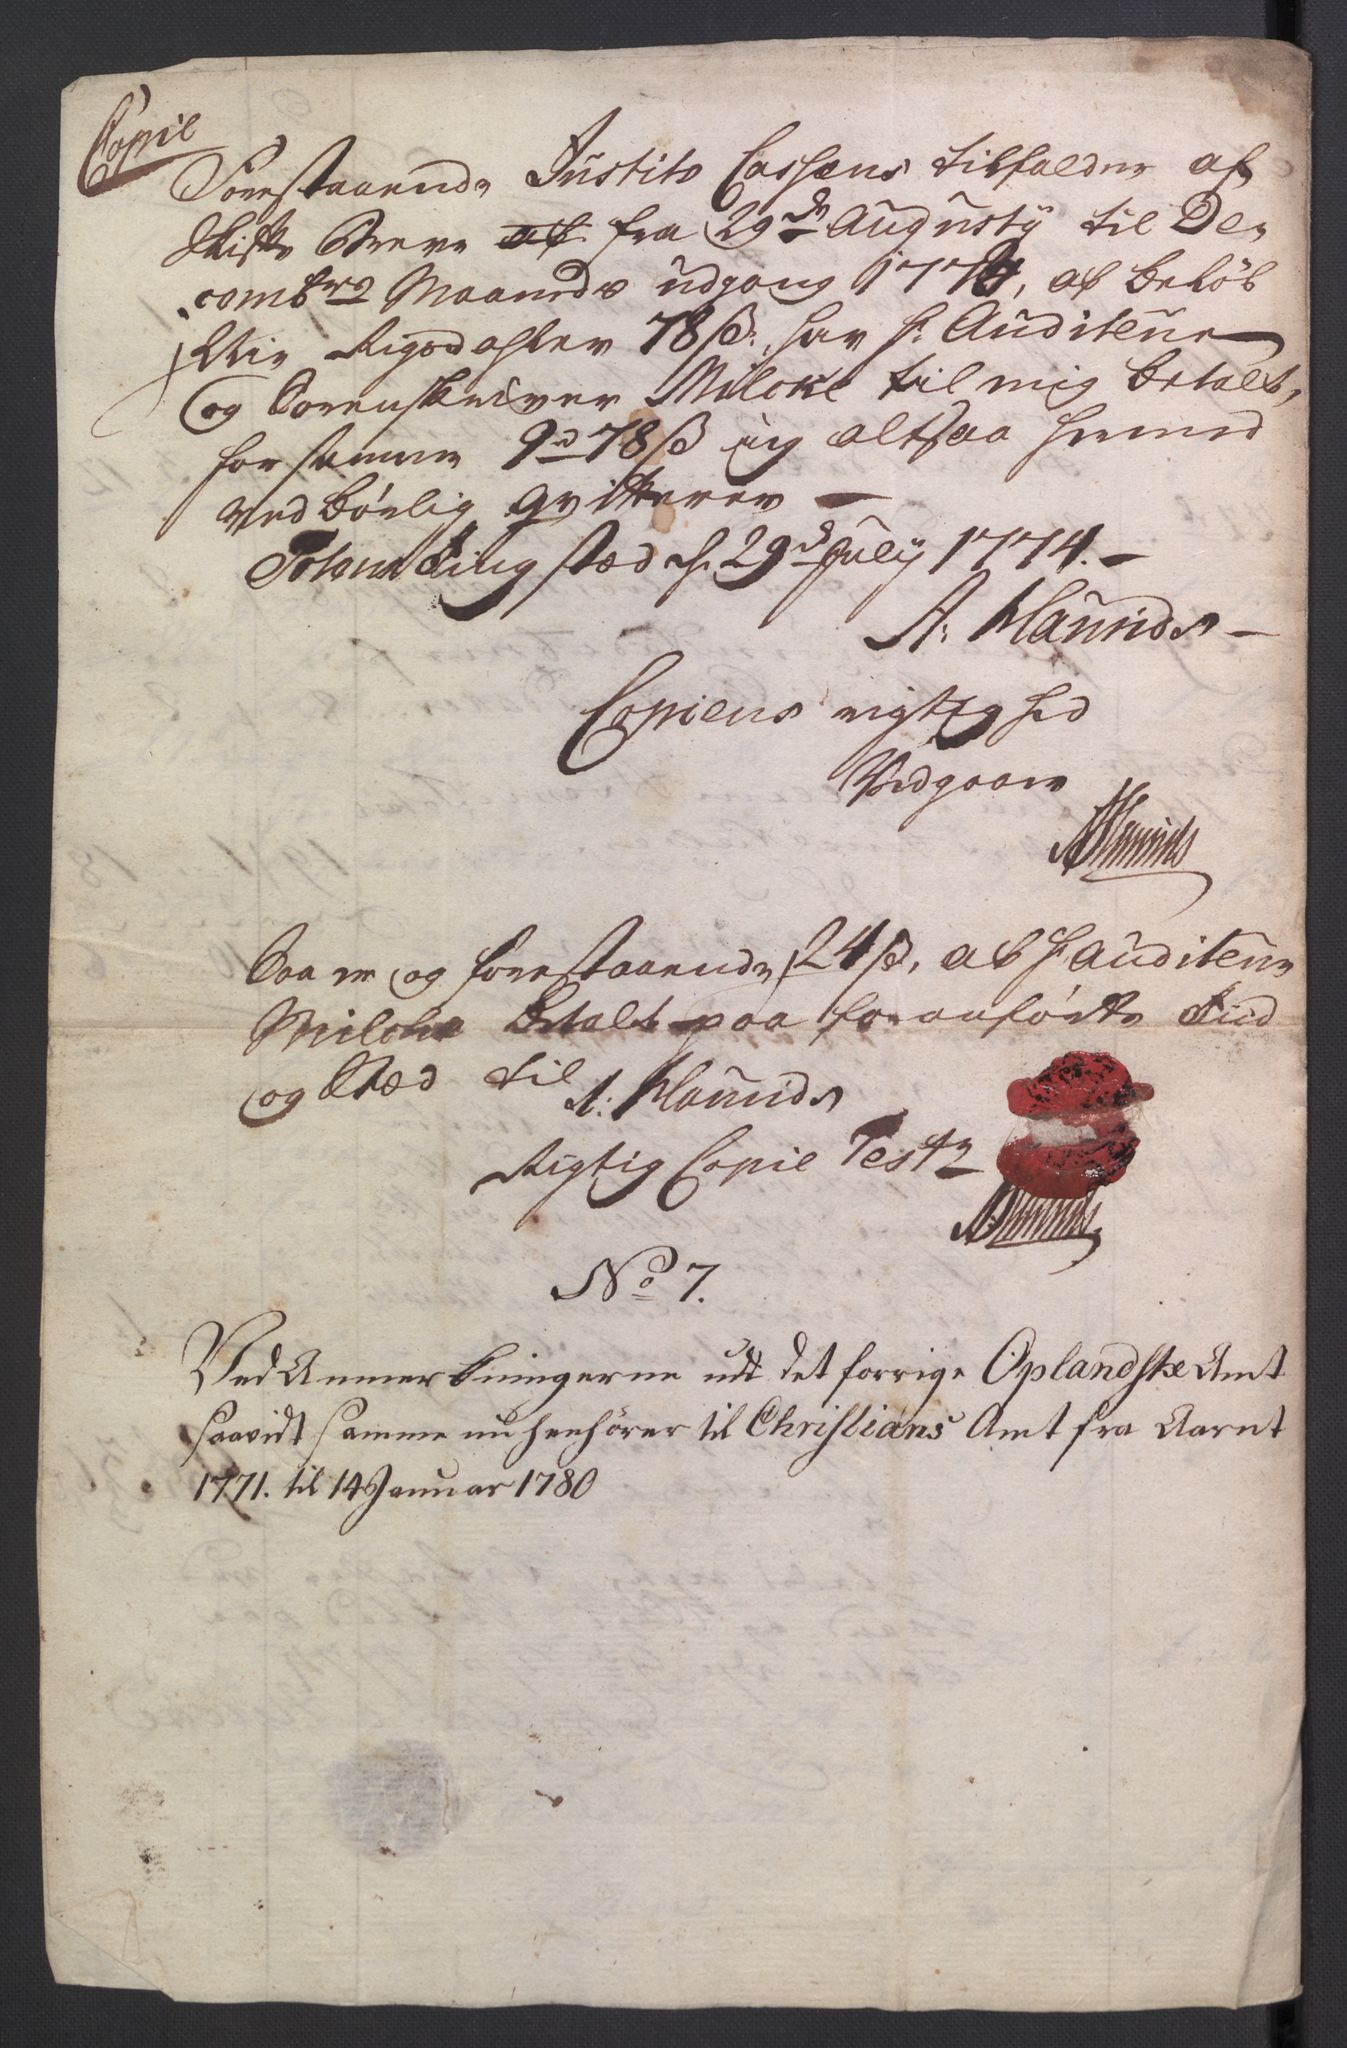 Copie
Forestaaende Justits Cassens tilfalder af
Skifte Breve af fra 29de Augusty til De-
combro Maaneds udgang 1770, af beløb
Nie Rigsdahler 78 ß:, har Hr: Auditeur
og Sorenskriver Milcke til mig betalt,
for samme 9 rd 78 ß ieg altsaa hermed
vedbørlig qvitterer —
Toten Tingstæd d. 29de July 1774. —
A: Haunids —
Copiens rigtighed
Vedgaaer
AHaunids
Saa er og forestaaende 24 ß, af Hr Auditeur
Milcke Betalt paa foranførte Tiid
og Stæd til
A: Haunids
Rigtig Copie Test
AHaunids
No 7.
Ved Anmerkningerne udi det forrige Oplandske Amt
saavidt samme nu henhører til Christians Amt fra Aaret
1771. til 14 Januar 1780